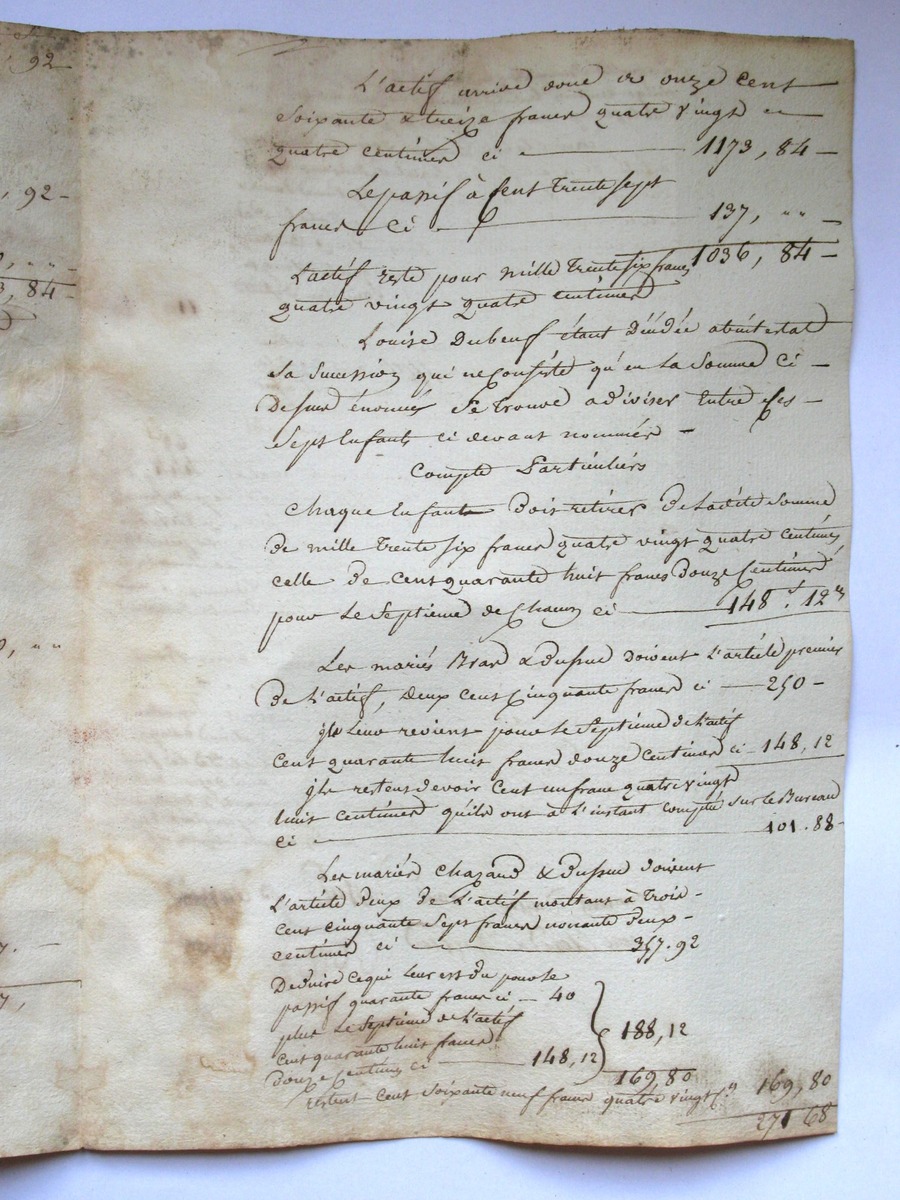 92
, 92 -
, " " -
3, 84 -
0, " "
7. -
7,
L'actif arrive donc a onze cent
soixante & treize francs quatre vingt
quatre centimes ci 1173, 84 -
Le passif à cent trente sept
francs ci 137, " " -
L'actif reste pour mille trente six francs 1036, 84 -
quatre vingt quatre centimes
Louise Dubeuf étant Décédée abintestat
sa sucession qui ne consiste qu'en la somme ci -
Dessus énoncée se trouve a diviser Entre ses -
sept Enfants ci devant nommés -
Compte Particuliers
Chaque Enfant doit retirer de ladite somme
De mille trente six francs quatre vingt quatre centimes
celle de cent quarante huit francs Douze Centimes
pour le septieme de Chacun ci 148 f. 12 c
Les mariés Brar & dussud doivent L'article premier
De L'actif, deux cent cinquante francs ci 250 -
ils leur revient pour le septieme de l'actif
cent quarante huit francs douze centimes ci 148, 12
ils restent devoir cent un franc quatre vingt
huit centimes qu'ils ont à l'instant compté sur le Bureau
ci 101. 88 -
Les mariés Chazaud & dussud doivent
L'article deux de L'actif montant à trois -
cent cinquante sept francs nonante deux -
centimes ci 357. 92
Deduire ce qui leur est du pour le
passif quarante francs ci - 40
plus le septieme de l'actif 188, 12
cent quarante huit francs
douze Centimes ci 148, 12
169, 80
restent cent soixante neuf francs quatre vingt 169, 80
271 68